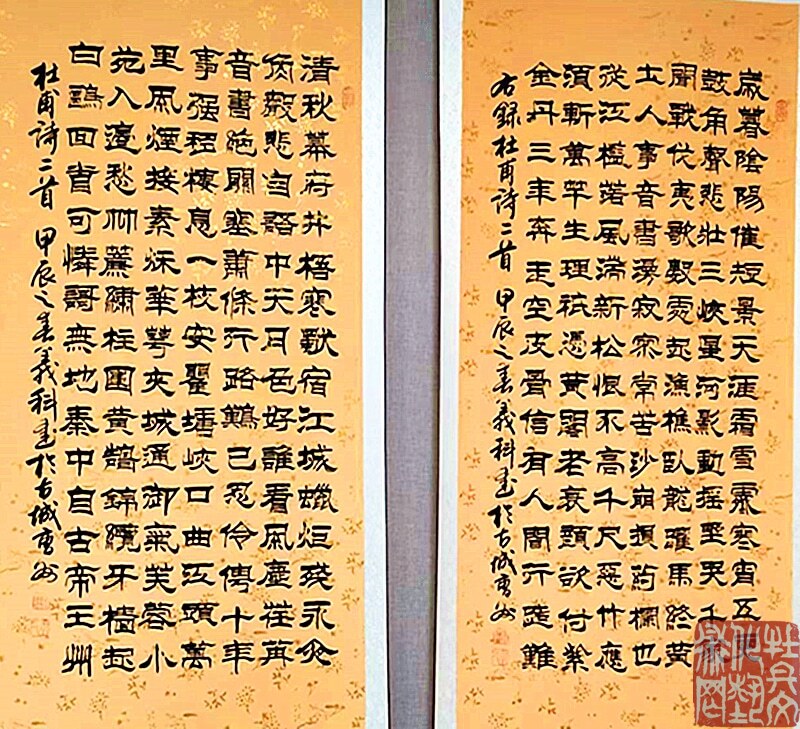 歲暮陰陽催短景天涯霜雪霽寒宵五更
鼓角聲悲壯三峽星河影動搖野哭千家
聞戰伐夷歌數處起漁樵臥龍躍馬終黃
土人事音書漫寂寥常苦沙崩損药欄也
從江檻落風湍新松恨不高千尺惡竹應
須斬萬竿生理祇憑黃閣老衰顏欲付紫
金丹三年奔走空皮骨信有人間行路難
右錄杜甫詩二首 甲辰之春義科書於古城唐州
清秋幕府井梧寒獨宿江城蠟炬殘永夜
角聲悲自語中天月色好誰看風塵荏苒
音書絕關塞蕭條行路難已忍伶俜十年
事强移棲息一枝安瞿塘峽口曲江頭萬
里風煙接素秋華萼夾城通御氣芙蓉小
苑入邊愁珠簾繡柱圍黃鵠錦纜牙檣起
白鷗回首可憐歌無地秦中自古帝王州
杜甫詩二首 甲辰之春義科書於古城唐州